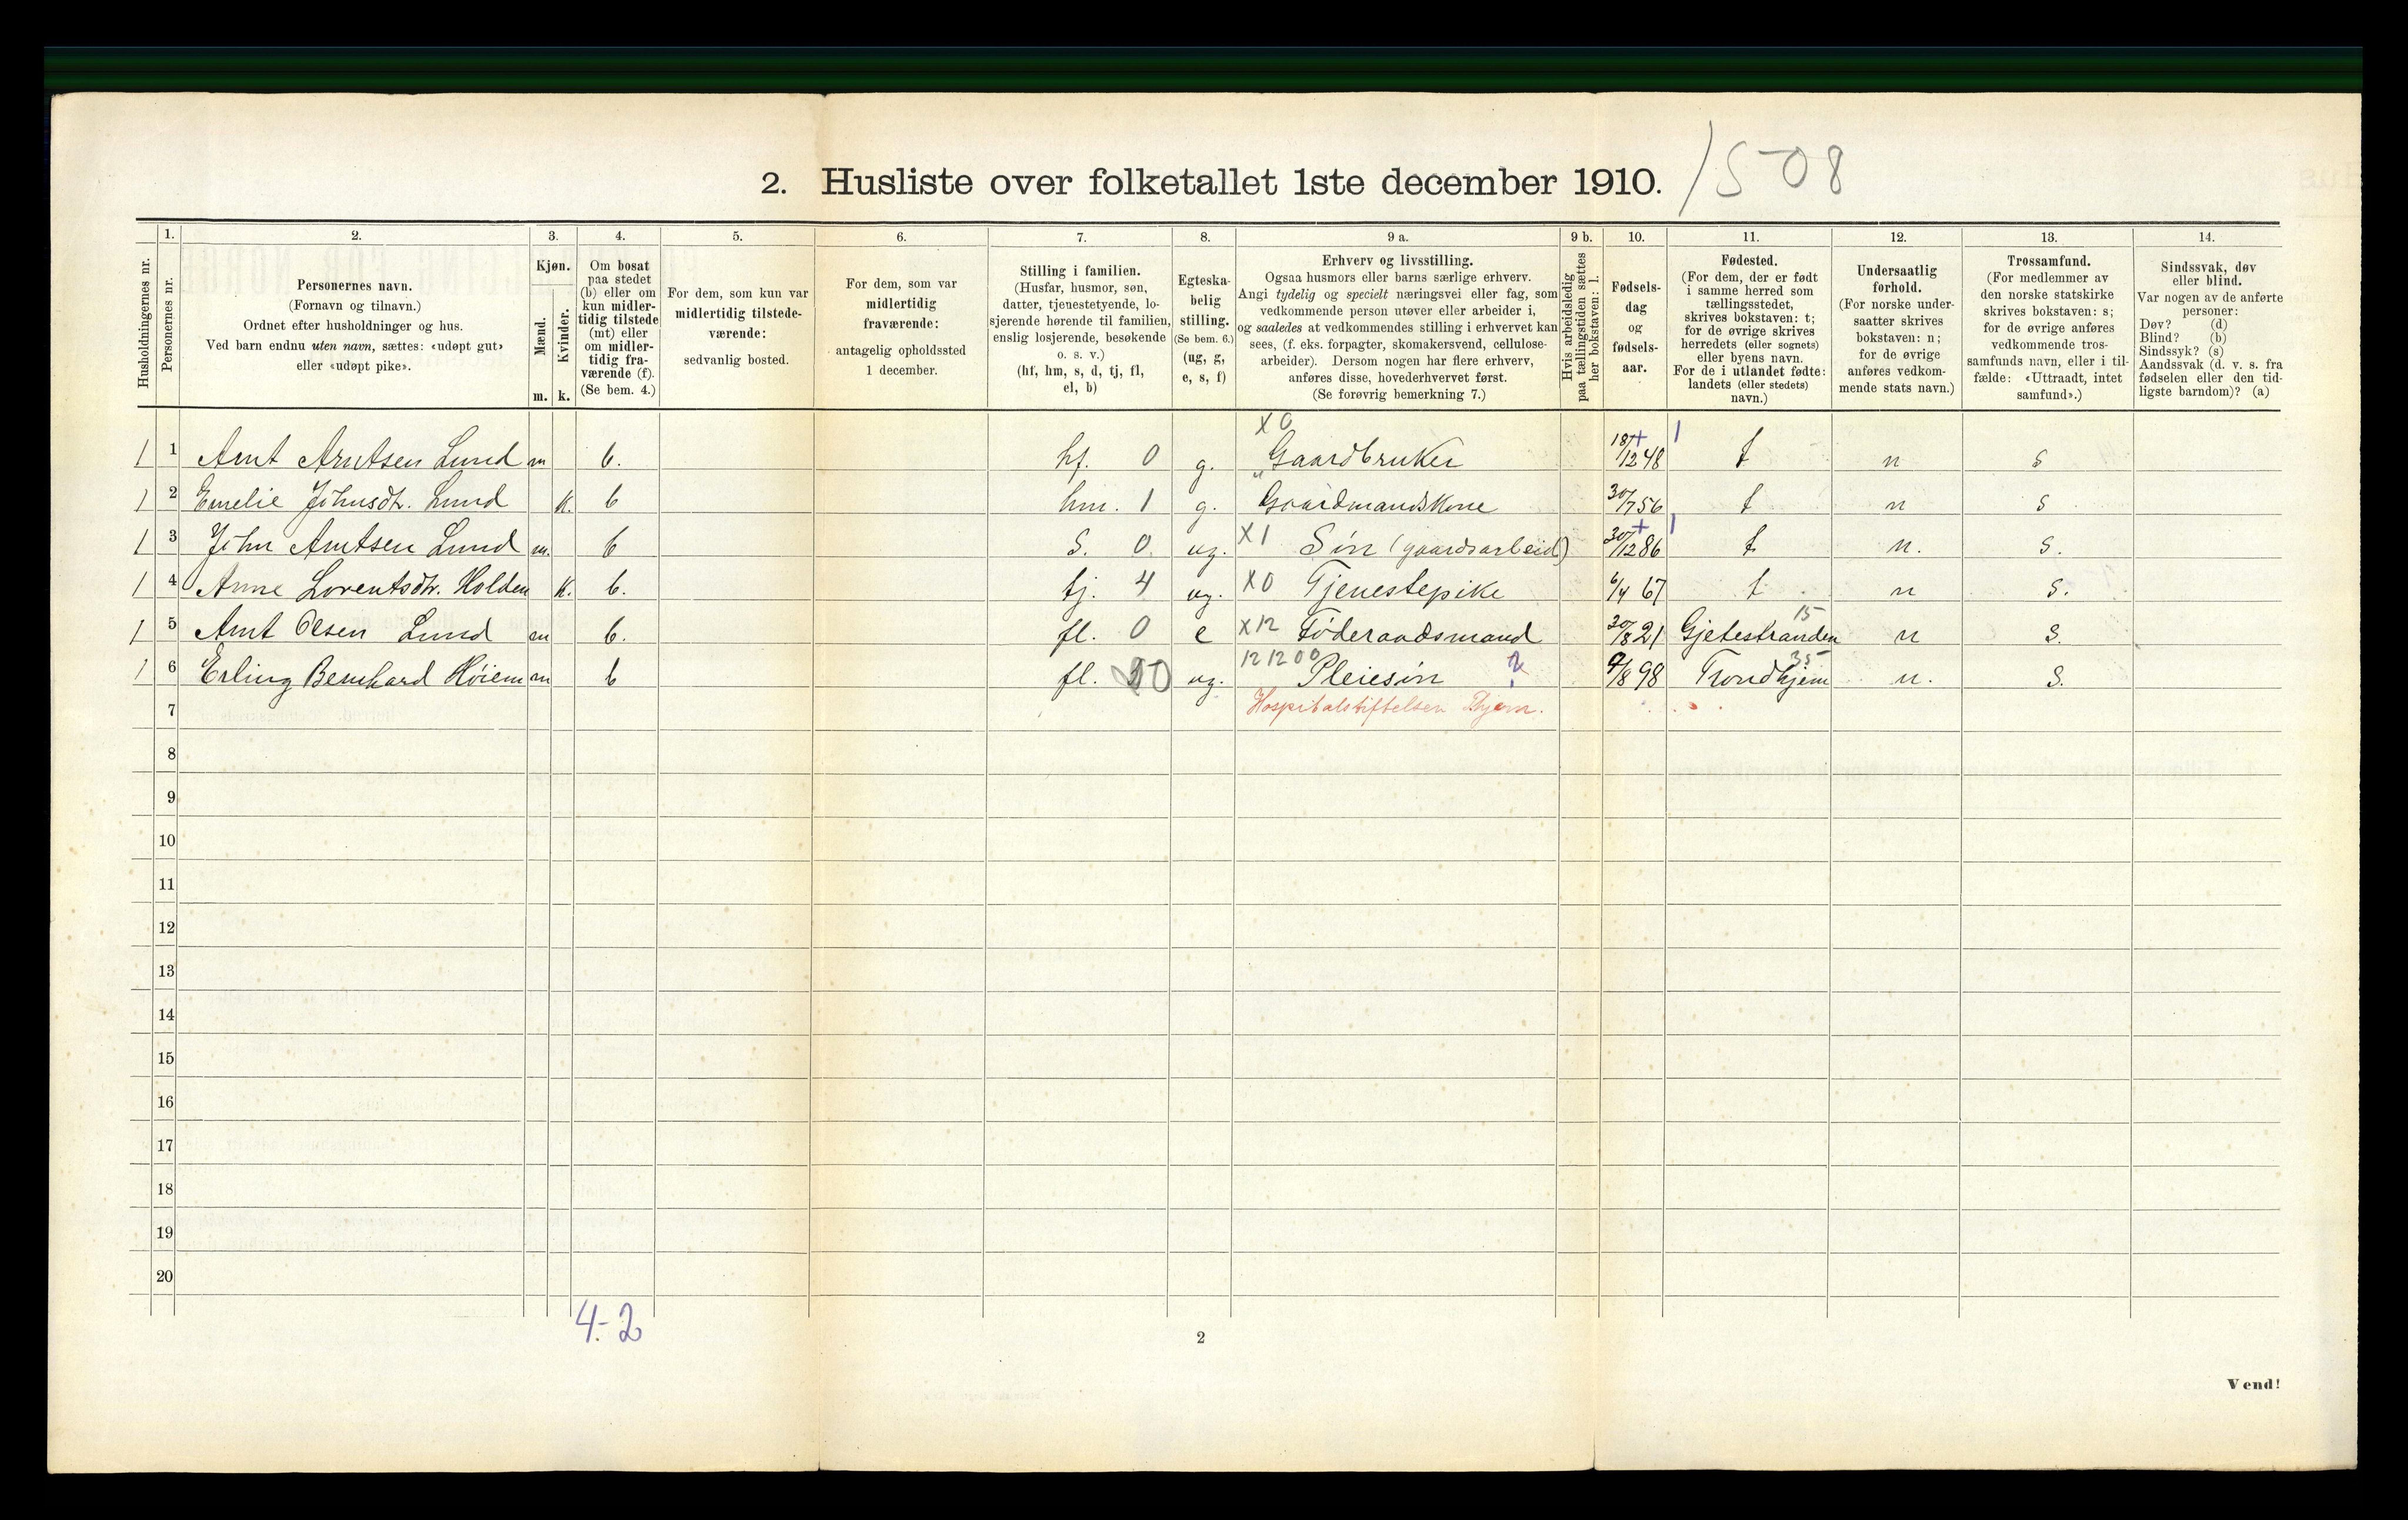 2. Husliste over folketallet 1ste december 1910. 1508
1. 2. 3. 4. 5. 6. 7. 8. 9 a. 9 b. 10. 11. 12. 13. 14.
Husholdningernes nr.
Personernes nr.
Personernes navn.
(Fornavn og tilnavn.)
Ordnet efter husholdninger og hus.
Ved barn endnu uten navn, sættes: «udøpt gut»
eller «udøpt pike».
Kjøn.
Mænd.
Kvinder.
m. k.
Om bosat
paa stedet
(b) eller om
kun midler-
tidig tilstede
(mt) eller
om midler-
tidig fra-
værende (f).
(Se bem. 4.)
For dem, som kun var
midlertidig tilstede-
værende:
sedvanlig bosted.
For dem, som var
midlertidig
fraværende:
antagelig opholdssted
1 december.
Stilling i familien.
(Husfar, husmor, søn,
datter, tjenestetyende, lo-
sjerende hørende til familien,
enslig losjerende, besøkende
o. s. v.)
(hf, hm, s, d, tj, fl,
el, b)
Egteska-
belig
stilling.
(Se bem. 6.)
(ug, g,
e, s, f)
Erhverv og livsstilling.
Ogsaa husmors eller barns særlige erhverv.
Angi tydelig og specielt næringsvei eller fag, som
vedkommende person utøver eller arbeider i,
og saaledes at vedkommendes stilling i erhvervet kan
sees, (f. eks. forpagter, skomakersvend, cellulose-
arbeider). Dersom nogen har flere erhverv,
anføres disse, hovederhvervet først.
(Se forøvrig bemerkning 7.)
Hvis arbeidsledig
paa tællingstiden sættes
her bokstaven: l.
Fødsels-
dag
og
fødsels-
aar.
Fødested.
(For dem, der er født
i samme herred som
tællingsstedet,
skrives bokstaven: t;
for de øvrige skrives
herredets (eller sognets)
eller byens navn.
For de i utlandet fødte:
landets (eller stedets)
navn.)
Undersaatlig
førhold.
(For norske under-
saatter skrives
bokstaven: n;
for de øvrige
anføres vedkom-
mende stats navn.)
Trossamfund.
(For medlemmer av
den norske statskirke
skrives bokstaven: s;
for de øvrige anføres
vedkommende tros-
samfunds navn, eller i til-
fælde: «Uttraadt, intet
samfund».)
Sindssvak, døv
eller blind.
Var nogen av de anførte
personer:
Døv? (d)
Blind? (b)
Sindssyk? (s)
Aandssvak (d. v. s. fra
fødselen eller den tid-
ligste barndom)? (a)
X 0
1 1 Arnt Arntsen Lund m b. hf. 0 g. Gaardbruker 18/12 48 t n s
1 2 Emelie Johnsdtr. Lund k. b hm. 1 g. Gaardmandskone 30/7 56 t n s
1 3 John Arntsen Lund m. b s. 0 ug. X1 Søn (gaardsarbeid) 30/12 86 t n. s.
1 4 Anne Lorentsdtr. Holden k. b. tj. 4 ug. X0 Tjenestepike 6/4 67 t n s.
1 5 Arnt Olsen Lund m b. fl. 0 e X12 Føderaadsmand 20/8 21 Gjetestranden 15 n s.
1 6 Erling Bernhard Høiem m b fl. 0 ug. 12 12 00 Pleiesøn ? 9/8 98 Trondhjem 35 n. s.
7 Hospitalstiftelsen Thjem.
8
9
10
11
12
13
14
15
16
17
18
19
20
4-2
2
Vend!